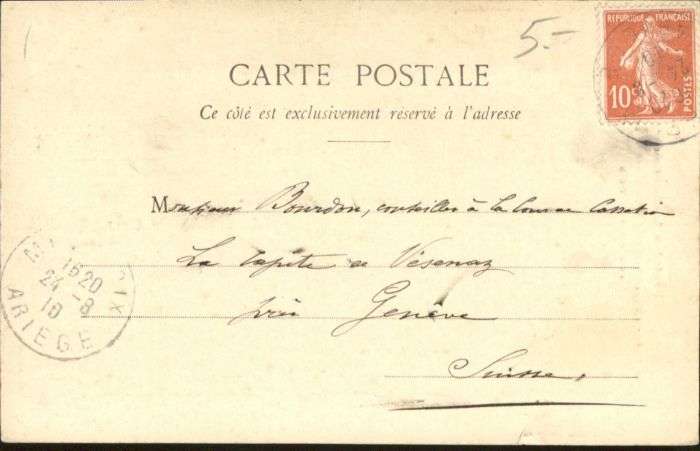 5.-
REPUBLIQUE FRANÇAISE
10
POSTES
CARTE POSTALE
Ce côté est exclusivement réservé à l'adresse
Monsieur Bourdon, conseiller à la Cour de Cassation
La Capite de Vésenaz
près Genève
Suisse.
1620
24-8
10
ARIEGE